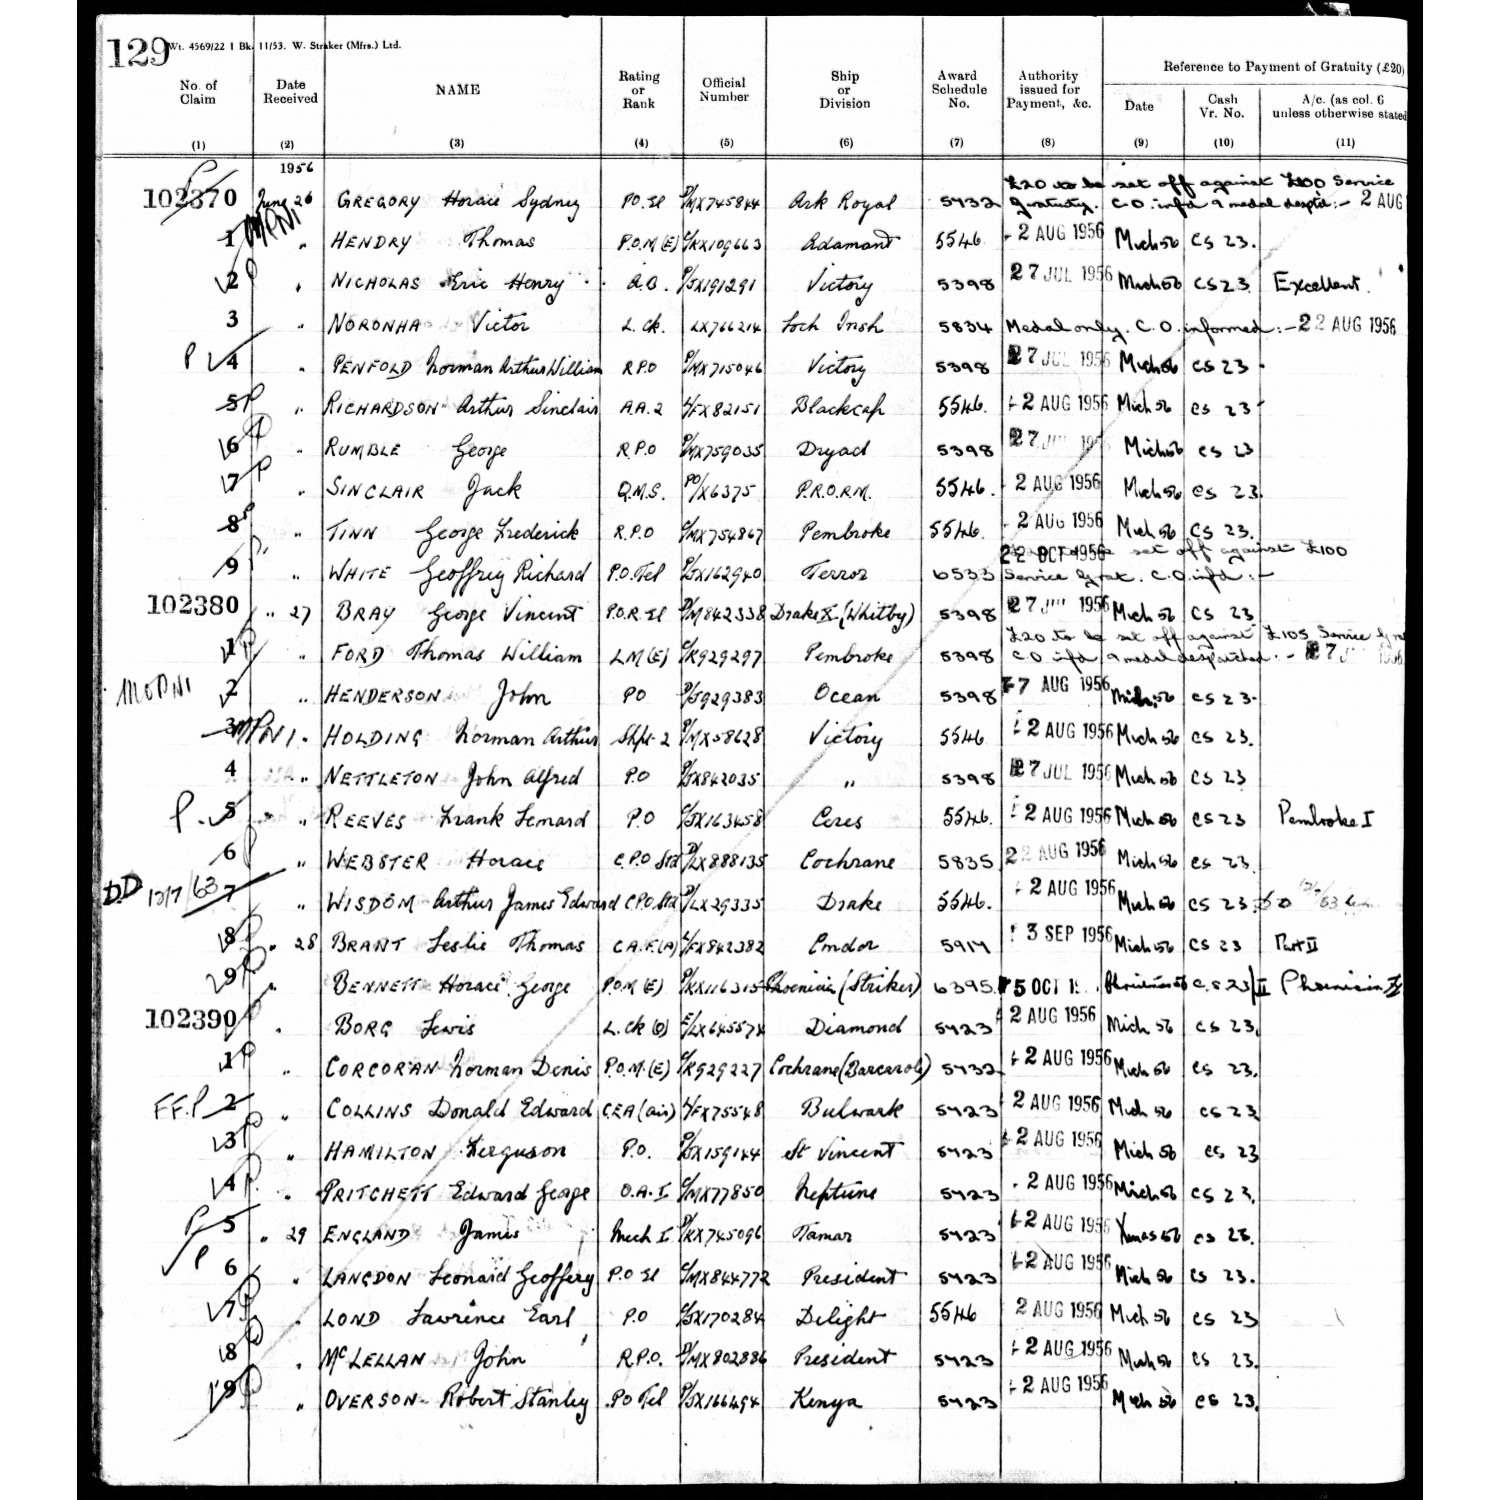 129 Wt. 4569/22 1 Bk. 11/53. W. Straker (Mfrs.) Ltd.
Reference to Payment of Gratuity (£20)
No. of Claim Date Received NAME Rating or Rank Official Number Ship or Division Award Schedule No. Authority issued for Payment, &c. Date Cash Vr. No. A/c. (as col. 6 unless otherwise stated
(1) (2) (3) (4) (5) (6) (7) (8) (9) (10) (11)
1956
£20 to be set off against £100 Service
102370 June 26 GREGORY Horace Sydney P.O. El P/MX745844 Ark Royal 5432 gratuity. C.O. infd & medal despd :- 2 AUG
1 MPNI " HENDRY Thomas P.O.M(E) C/KX109663 Adamant 5546 2 AUG 1956 Mich 56 CS 23.
2 P " NICHOLAS Eric Henry A.B. P/JX191291 Victory 5398 27 JUL 1956 Mich 56 CS 23 Excellent
3 " NORONHA Victor L. Ck. LX766214 Loch Insh 5834 Medal only. C.O. informed :- 22 AUG 1956
P 4 " PENFOLD Norman Arthur William R.P.O P/MX715046 Victory 5398 27 JUL 1956 Mich 56 CS 23
5 P " RICHARDSON Arthur Sinclair A.A.2 L/FX82151 Blackcap 5546. 2 AUG 1956 Mich 56 CS 23
6 P " RUMBLE George R.P.O P/MX759035 Dryad 5398 27 195 Mich 56 CS 23
7 P " SINCLAIR Jack Q.M.S. PO/X6375 P.R.O.R.M. 5546. 2 AUG 1956 Mich 56 CS 23.
8 P " TINN George Frederick R.P.O C/MX754867 Pembroke 5546. 2 AUG 1956 Mich 56 CS 23.
22 OCT 1956 set off against £100
9 P " WHITE Geoffrey Richard P.O. Tel P/JX162940 Terror 6533 Service Grat. C.O. infd :-
102380 " 27 BRAY George Vincent P.O.R. El P/M842338 Drake X, (Whitby) 5398 27 1956 Mich 56 CS 23
£20 to be set off against £105 Service
1 P " FORD Thomas William L.M(E) C/K929297 Pembroke 5398 C.O. infd & medal despatched :- 27
MOPNI 2 " HENDERSON John PO P/J929383 Ocean 5398 7 AUG 1956 Mich 56 CS 23.
3 MPNI " HOLDING Norman Arthur Shpt 2 P/MX58628 Victory 5546 2 AUG 1956 Mich 56 CS 23.
4 " NETTLETON John Alfred P.O P/JX842035 " 5398 27 JUL 1956 Mich 56 CS 23
P. 5 " REEVES Frank Lenard P.O C/JX163458 Ceres 5546. 2 AUG 1956 Mich 56 CS 23 Pembroke I
6 P " WEBSTER Horace C.P.O Std P/LX888135 Cochrane 5835 22 AUG 1956 Mich 56 CS 23.
DD 12/7/63 7 " WISDOM Arthur James Edward C.P.O. Std P/LX29335 Drake 5546. 2 AUG 1956 Mich 56 CS 23.
8 P " 28 BRANT Leslie Thomas C.A.F.(A) L/FX842382 Condor 5914 3 SEP 1956 Mich 56 CS 23 Part II
9 P " BENNETT Horace George P.O.M (E) P/KX116315 Phoenicia (Striker) 6395. 5 OCT C.S 23 II Phoenicia
102390 P " BORG Lewis L. Ck (O) E/LX645574 Diamond 5423 2 AUG 1956 Mich 56 CS 23.
1 P " CORCORAN Norman Denis P.O.M.(E) C/K929227 Cochrane (Barcarole) 5432 2 AUG 1956 Mich 56 CS 23.
F.F.P 2 " COLLINS Donald Edward C.E.A (air) L/FX75548 Bulwark 5423 2 AUG 1956 Mich 56 CS 23
3 P " HAMILTON Ferguson P.O. P/JX159144 St Vincent 5423 2 AUG 1956 Mich 56 CS 23
4 P " PRITCHETT Edward George O.A.I C/MX77850 Neptune 5423 2 AUG 1956 Mich 56 CS 23.
P 5 " 29 ENGLAND James Mech I P/KX745096 Tamar 5423 2 AUG 1956 Xmas 56 CS 23.
P 6 " LANGDON Leonard Geoffery P.O El C/MX844772 President 5423 2 AUG 1956 Mich 56 CS 23.
7 P " LOND Lawrence Earl P.O C/JX170284 Delight 5546 2 AUG 1956 Mich 56 CS 23
8 P " McLELLAN John R.P.O. P/MX802886 President 5423 2 AUG 1956 Mich 56 CS 23.
9 P " OVERSON Robert Stanley P.O Tel P/JX166494 Kenya 5423 2 AUG 1956 Mich 56 CS 23.